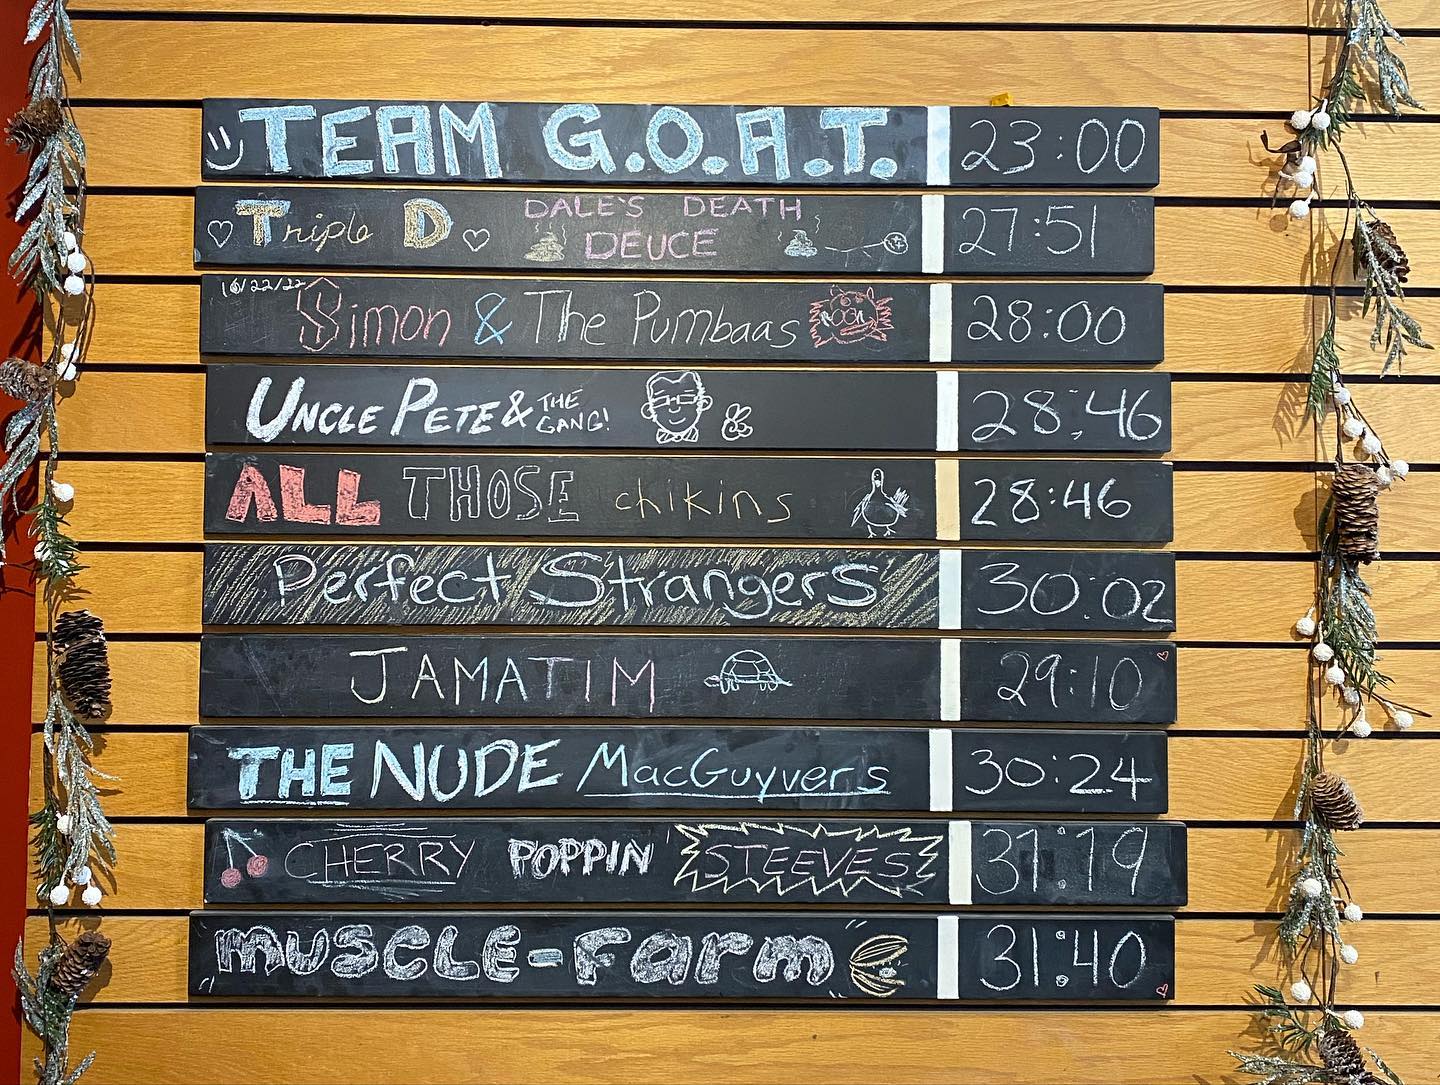 TEAM G.O.A.T. 23:00
Triple D DALE'S DEATH DEUCE 27:51
10/22/22 Simon & The Pumbaas 28:00
UNCLE PETE & THE GANG! 28:46
ALL THOSE chikins 28:46
Perfect Strangers 30:02
JAMATIM 29:10
THE NUDE MacGuyvers 30:24
CHERRY POPPIN' STEEVES 31:19
"MUSCLE-Farm" 31:40